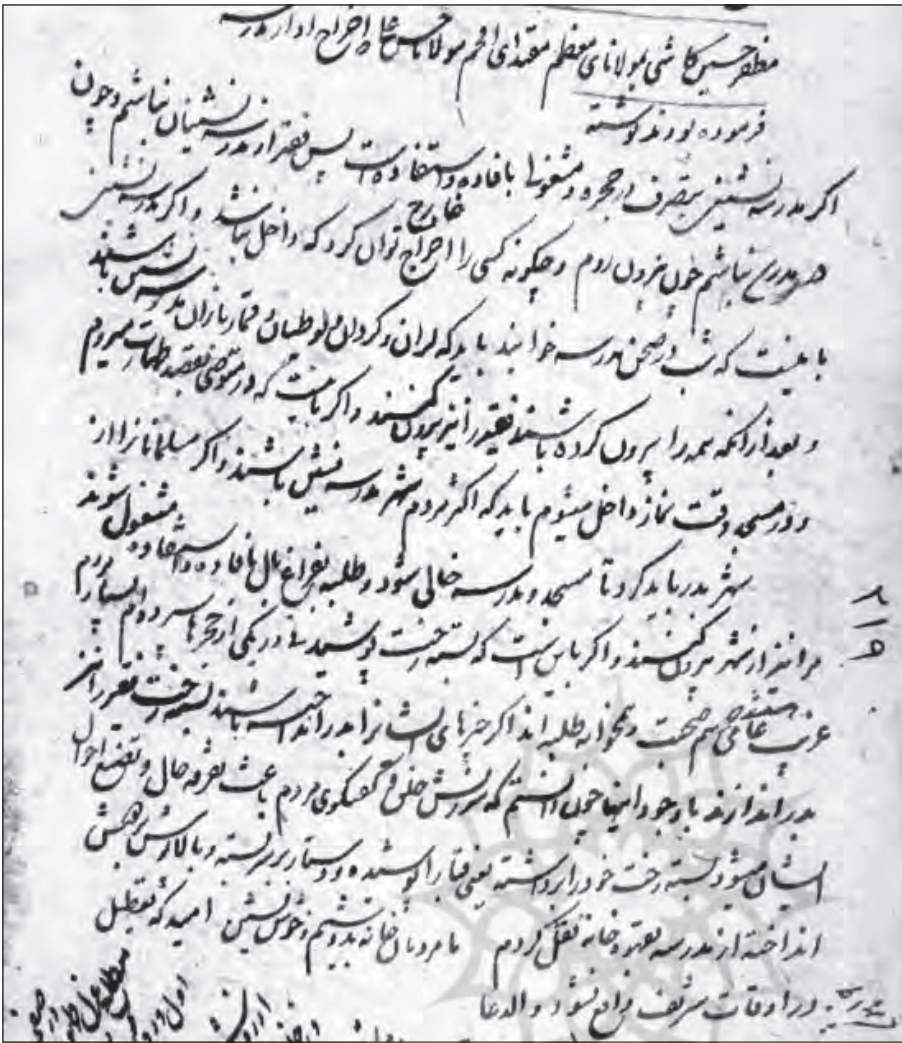 مظفر حسین کاشی بمولانای معظم مقتدای افخم مولانا حسن علی اخراج او از مدرسه
فرموده بودند نوشته
اگر مدرسه نشینی بتصرف در حجره و مشغولی بافاده و استفاده است پس فقیر از مدرسه نشینان نباشم و چون
هر مدرس نباشم چون بیرون روم و چگونه کسی را اخراج توان کرد که داخل نباشد و اگر مدرسه نشینی
خارج
باینست که شب در صحن مدرسه خوابند باید که لران و کردان و لوطیان و قماربازان مدرسه نشین باشند
و بعد از آنکه همه را بیرون کرده باشند فقیر را نیز بیرون کنند و اگر باینست که در متوضی بقصد طهارت میروم
و در مسجد وقت نماز داخل میشوم باید که اکثر مردم شهر مدرسه نشین باشند و اگر مسلمانانرا از
شهر بدر باید کرد تا مسجد و مدرسه خالی شود و طلبه بفراغ بال بافاده و استفاده مشغول شوند
مرا نیز از شهر بیرون کنند و اگر باین است که بسته رخت پوشیدنی در یکی از حجرها سپرده ام بسیار مردم
غریب عامی هستند هم صحبت و همخوابه طلبه اند اگر چیزهای ایشانرا بدر انداخته باشند بسته رخت فقیر را نیز
بدر اندازند با وجود اینها چون دانستم که سرزنش خلق و گفتگوی مردم باعث تفرقه حال و تضییع احوال
ایشان میشود بسته رخت خود را برداشته یعنی قبا را پوشیده و دستار بر سر بسته و بالاپوش بر دوش
انداخته از مدرسه بقهوه خانه نقل کردم ما مردمان خانه بدوشیم و خوش نشین امید که تعطیل
در اوقات شریف واقع نشود والدعا
۸۱۵